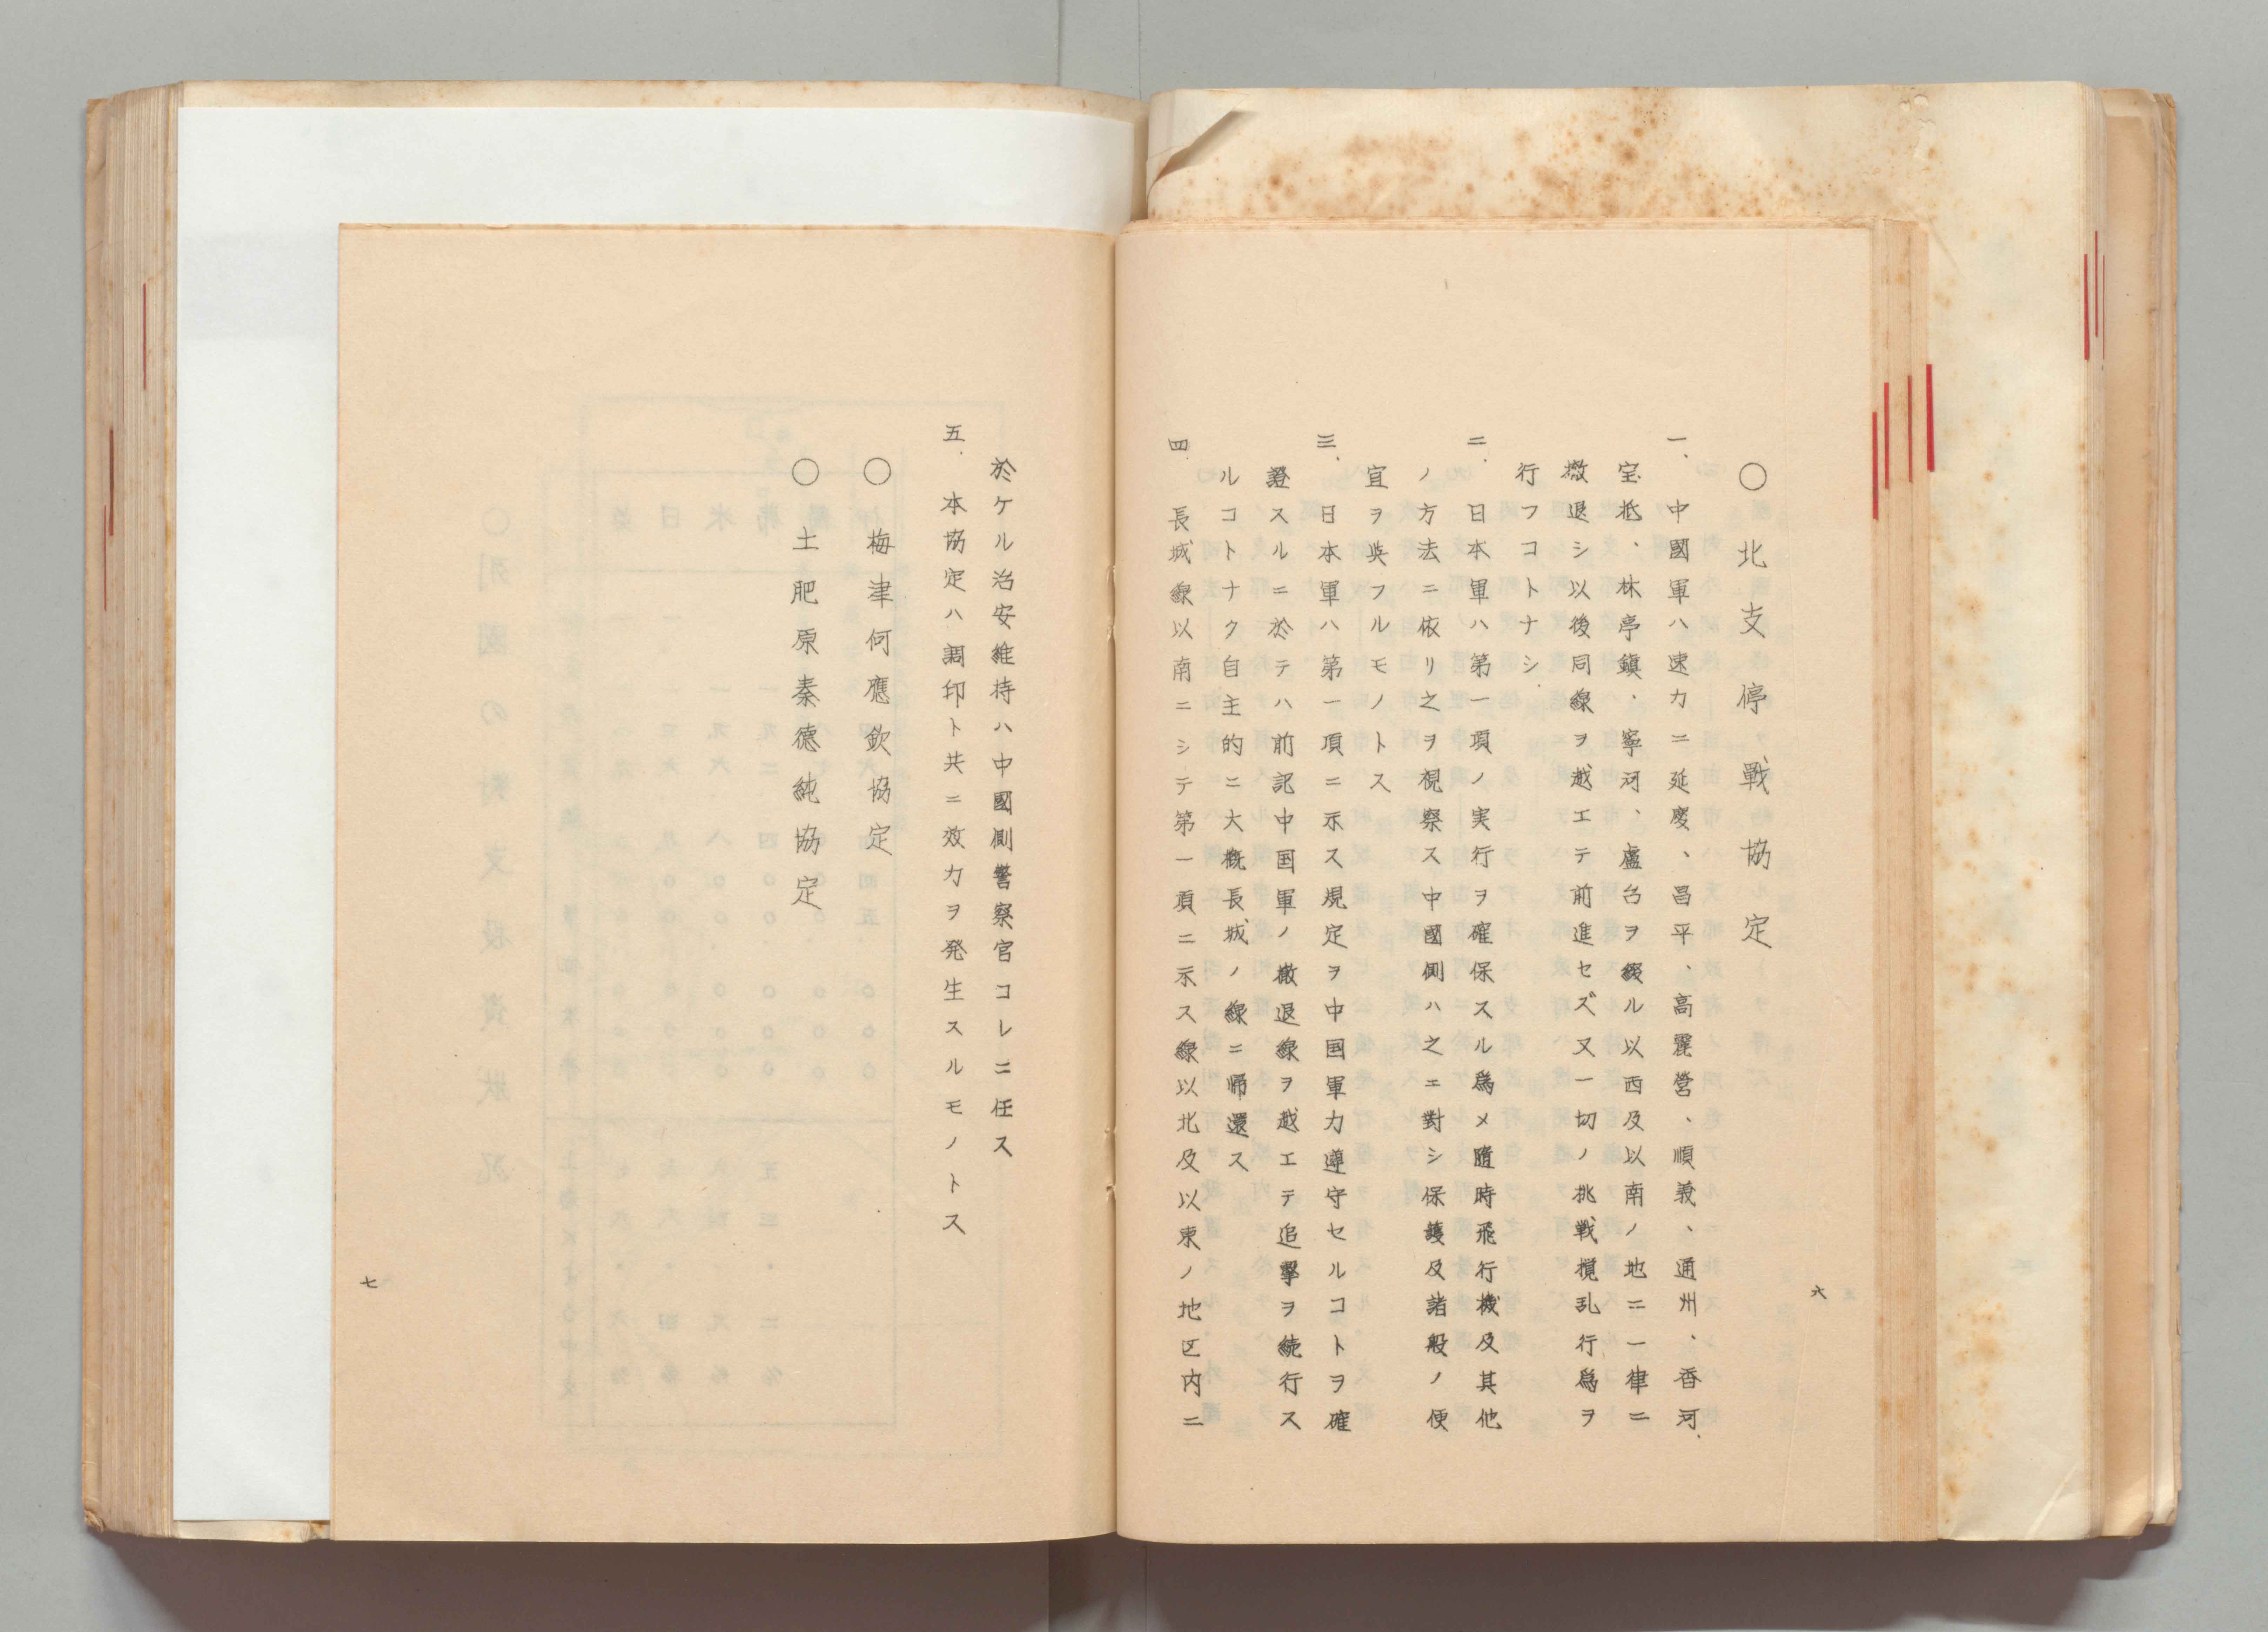 〇北支停戰協定
一、中國軍ハ速カニ延慶、昌平、高麗營、順義、通州、香河、
宝抵、林亭鎭、寧河、盧台ヲ綴ル以西及以南ノ地ニ一律ニ
撤退シ以後同線ヲ越エテ前進セズ又一切ノ挑戦撹乱行爲ヲ
行フコトナシ
二、日本軍ハ第一項ノ実行ヲ確保スル爲メ随時飛行機及其他
ノ方法ニ依リ之ヲ視察ス中國側ハ之ニ對シ保護及諸般ノ便
宜ヲ與フルモノトス
三、日本軍ハ第一項ニ示ス規定ヲ中国軍力遵守セルコトヲ確
證スルニ於テハ前記中国軍ノ撤退線ヲ越エテ追擊ヲ続行ス
ルコトナク自主的ニ大概長城ノ線ニ帰還ス
四、長城線以南ニシテ第一項ニ示ス線以北及以東ノ地区内ニ
六
於ケル治安維持ハ中國側警察官コレニ任ス
五、本協定ハ調印ト共ニ效力ヲ発生スルモノトス
〇梅津何應欽協定
〇土肥原秦德純協定
七